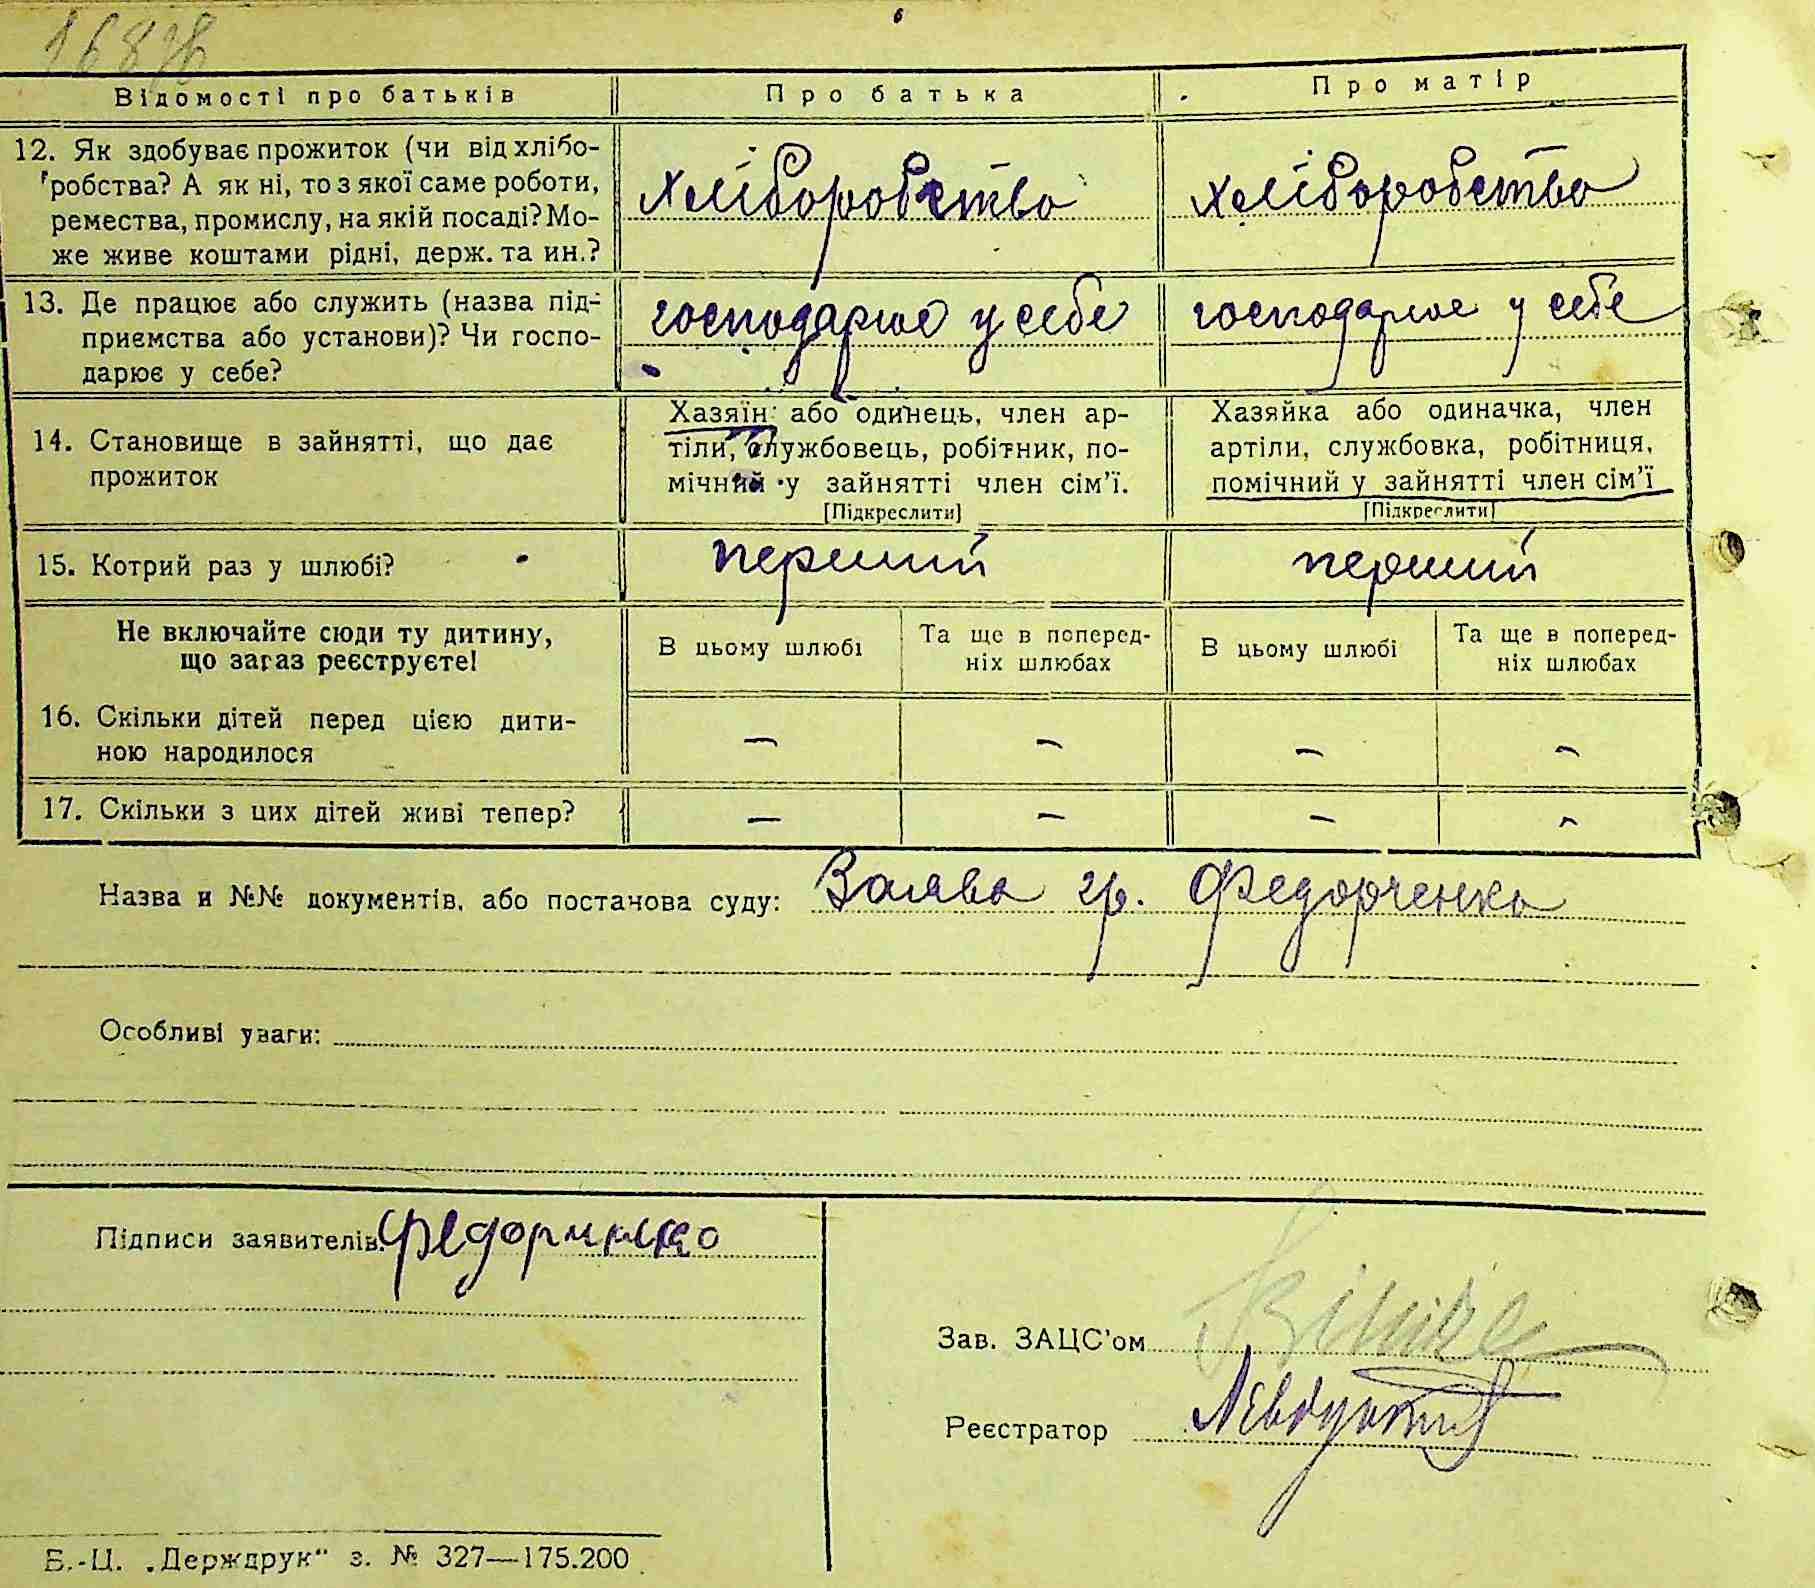 Відомості про батьків | Про батька | Про матір
12. Як здобуває прожиток (чи від хлібо-
робства? А як ні, то з якої саме роботи,
ремества, промислу, на якій посаді? Мо-
же живе коштами рідні, держ. та ин.?
хліборобство
хліборобство
13. Де працює або служить (назва під-
приємства або установи)? Чи госпо-
дарює у себе?
господарює у себе
господарює у себе
14. Становище в зайнятті, що дає
прожиток
Хазяїн або одинець, член ар-
тіли, службовець, робітник, по-
мічний у зайнятті член сім'ї.
[Підкреслити]
Хазяйка або одиначка, член
артіли, службовка, робітниця,
помічний у зайнятті член сім'ї
[Підкреслити]
15. Котрий раз у шлюбі?
перший
перший
Не включайте сюди ту дитину,
що зараз реєструєте!
В цьому шлюбі
Та ще в поперед-
ніх шлюбах
В цьому шлюбі
Та ще в поперед-
ніх шлюбах
16. Скільки дітей перед цією дити-
ною народилося
— — — —
17. Скільки з цих дітей живі тепер?
— — — —
Назва и №№ документів, або постанова суду: Заява гр. Федорченко
Особливі уваги:
Підписи заявителів:
Зав. ЗАЦС'ом
Реєстратор
Б.-Ц. „Держдрук" з. № 327—175.200